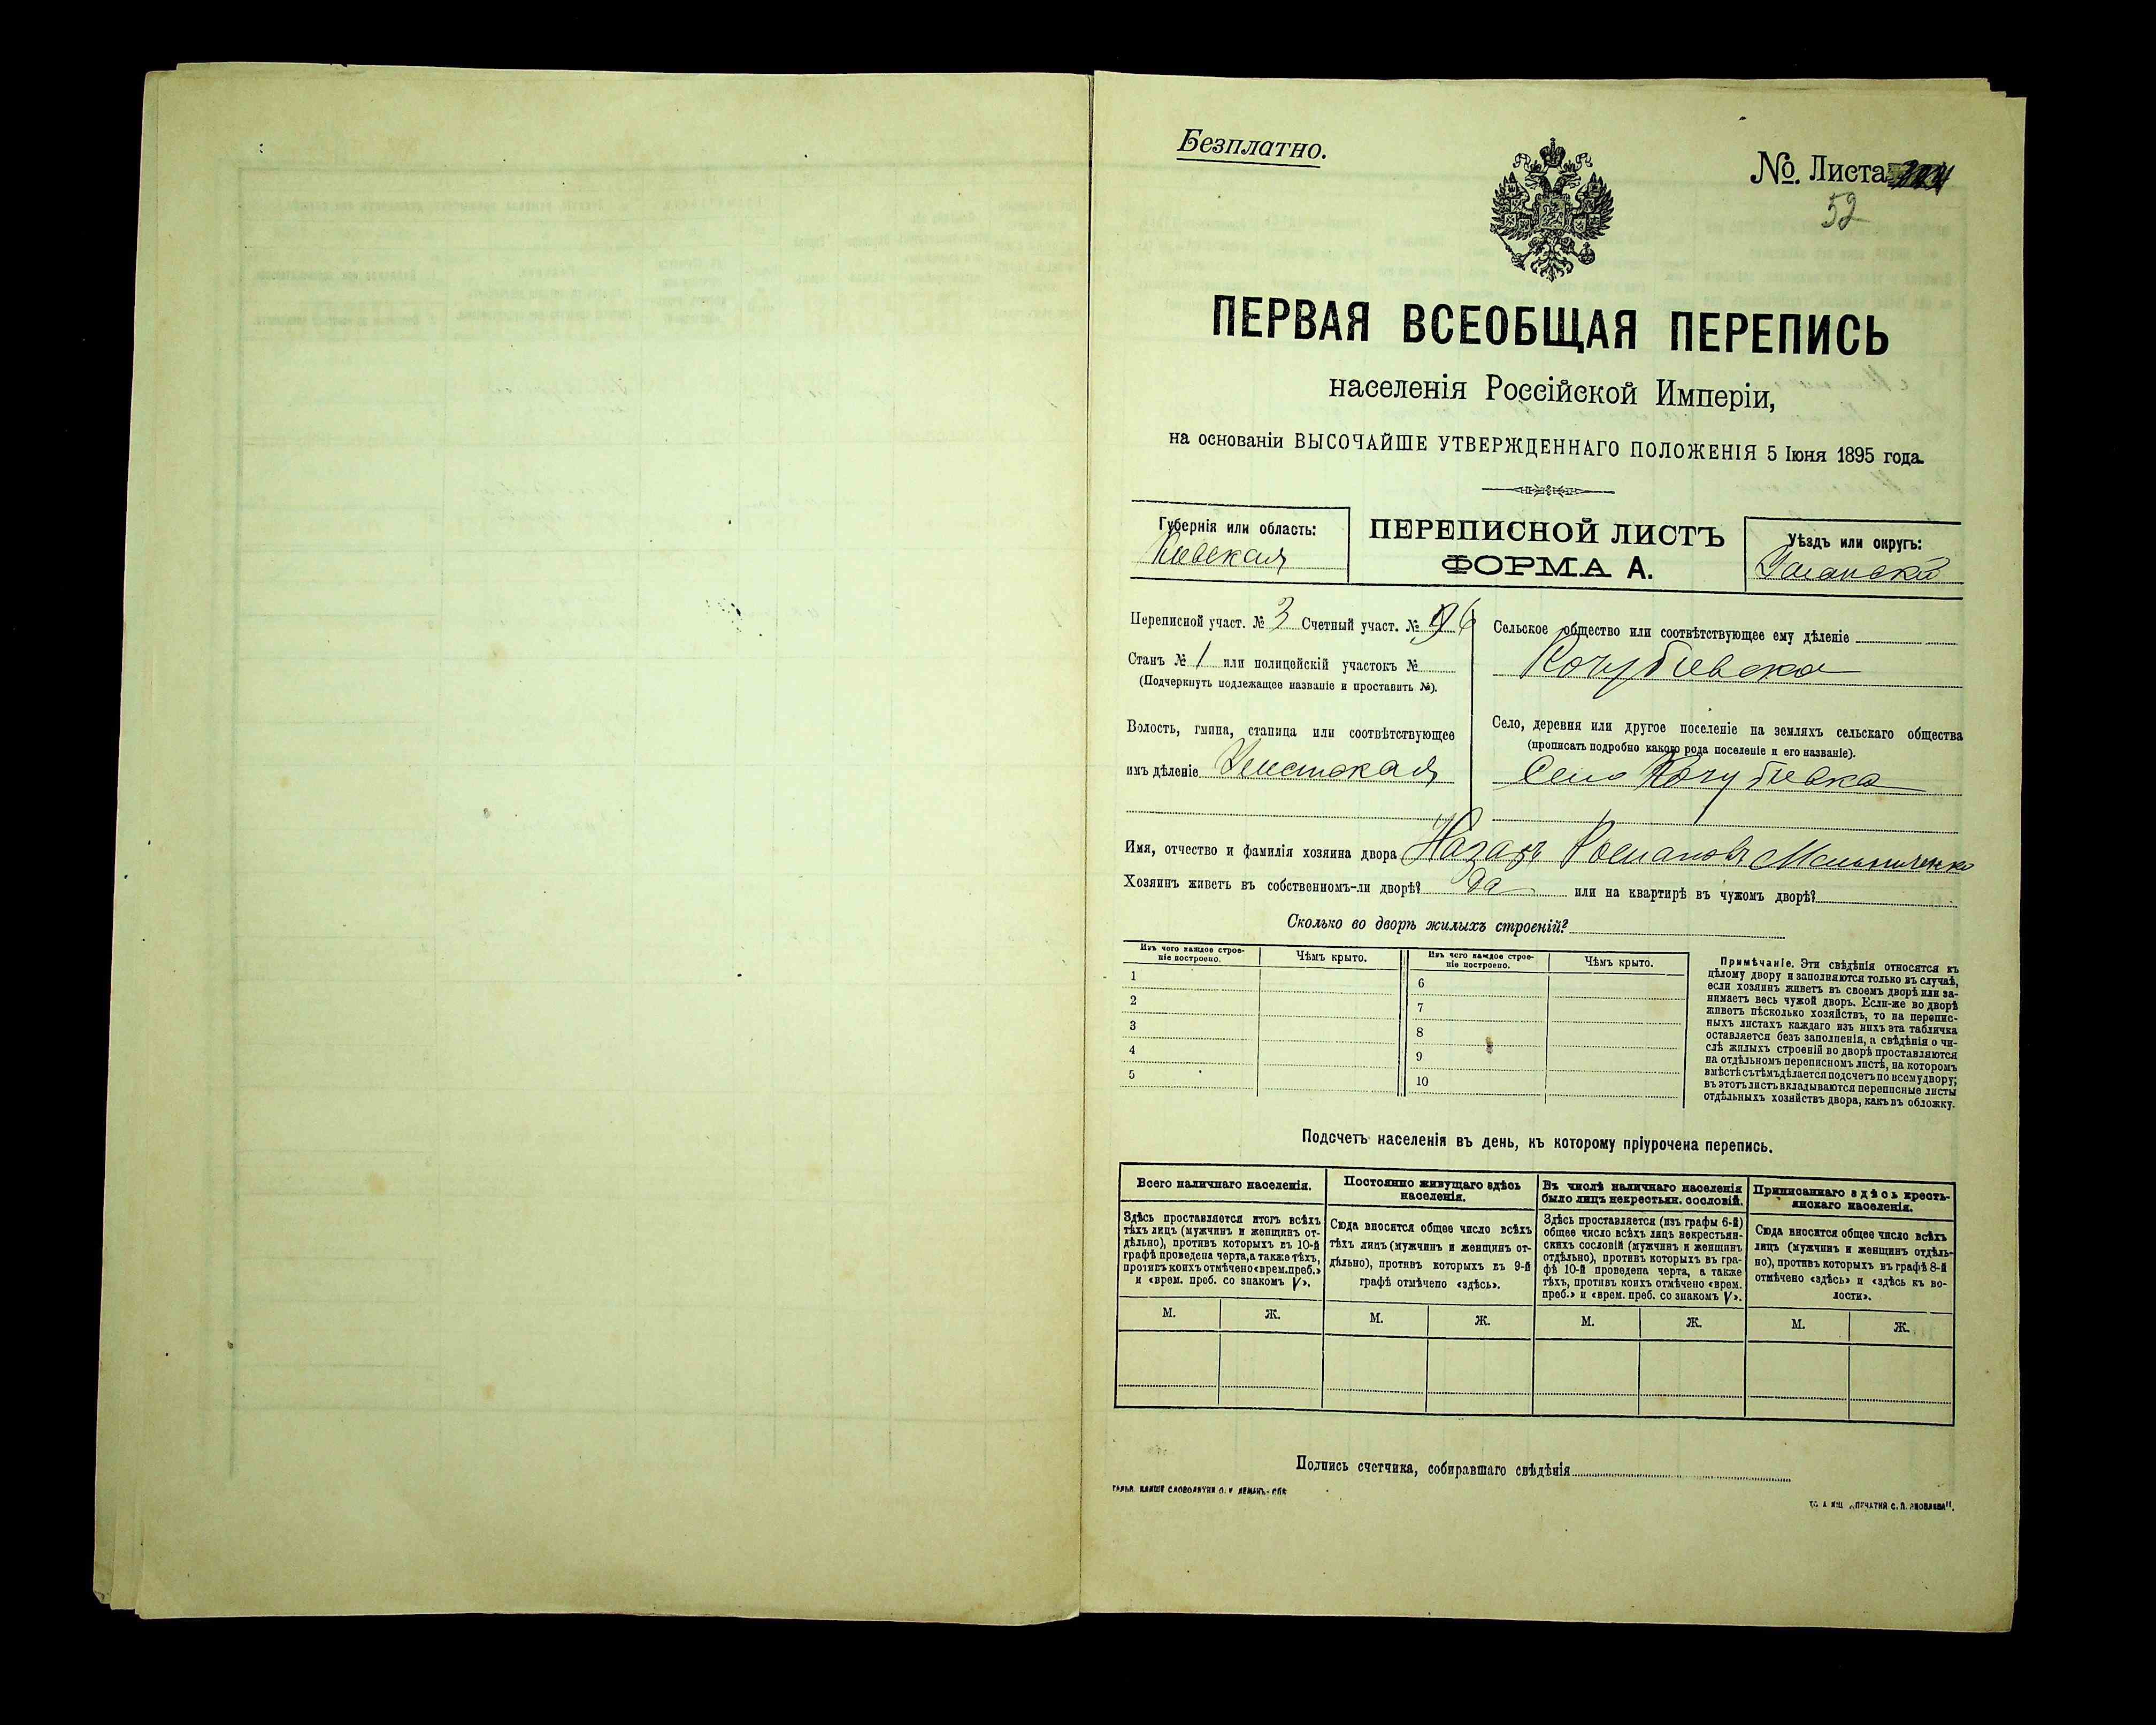 Безплатно.
№. Листа
52
ПЕРВАЯ ВСЕОБЩАЯ ПЕРЕПИСЬ
населенія Россійской Имперіи,
на основаніи ВЫСОЧАЙШЕ УТВЕРЖДЕННАГО ПОЛОЖЕНІЯ 5 Іюня 1895 года.
Губернія или область:
Кіевская
ПЕРЕПИСНОЙ ЛИСТЪ
ФОРМА А.
Уѣздъ или округъ:
Уманскій
Переписной участ. № 3 Счетный участ. № 6
Станъ № 1 или полицейскій участокъ №
(Подчеркнуть подлежащее названіе и проставить №).
Волость, гмина, станица или соотвѣтствующее
имъ дѣленіе
Сельское общество или соотвѣтствующее ему дѣленіе
Кочубіевска
Село, деревня или другое поселеніе на земляхъ сельскаго общества
(прописать подробно какого рода поселеніе и его названіе).
Село Кочубіевка
Имя, отчество и фамилія хозяина двора Назаръ Романовъ Мельниченко
Хозяинъ живетъ въ собственномъ-ли дворѣ? да или на квартирѣ въ чужомъ дворѣ?
Сколько во дворѣ жилыхъ строеній?
Изъ чего каждое строе-
ніе построено.
Чѣмъ крыто.
1
2
3
4
5
Изъ чего каждое строе-
ніе построено.
Чѣмъ крыто.
6
7
8
9
10
Примѣчаніе. Эти свѣдѣнія относятся къ
цѣлому двору и заполняются только въ случаѣ,
если хозяинъ живетъ въ своемъ дворѣ или за-
нимаетъ весь чужой дворъ. Если-же во дворѣ
живетъ нѣсколько хозяйствъ, то на перепис-
ныхъ листахъ каждаго изъ нихъ эта табличка
оставляется безъ заполненія, а свѣдѣнія о чи-
слѣ жилыхъ строеній во дворѣ проставляются
на отдѣльномъ переписномъ листѣ, на которомъ
вмѣстѣ съ тѣмъ дѣлается подсчетъ по всему двору;
въ этотъ листъ вкладываются переписные листы
отдѣльныхъ хозяйствъ двора, какъ въ обложку.
Подсчетъ населенія въ день, къ которому пріурочена перепись.
Всего наличнаго населенія.
Здѣсь проставляется итогъ всѣхъ
тѣхъ лицъ (мужчинъ и женщинъ от-
дѣльно), противъ которыхъ въ 10-й
графѣ проведена черта, а также тѣхъ,
противъ коихъ отмѣчено «врем. преб.»
и «врем. преб. со знакомъ V».
М.
Ж.
Постоянно живущаго здѣсь
населенія.
Сюда вносится общее число всѣхъ
тѣхъ лицъ (мужчинъ и женщинъ от-
дѣльно), противъ которыхъ въ 9-й
графѣ отмѣчено «здѣсь».
М.
Ж.
Въ числѣ наличнаго населенія
было лицъ некрестьян. сословій.
Здѣсь проставляется (изъ графы 6-й)
общее число всѣхъ лицъ некрестьян-
скихъ сословій (мужчинъ и женщинъ
отдѣльно), противъ которыхъ въ гра-
фѣ 10-й проведена черта, а также
тѣхъ, противъ коихъ отмѣчено «врем.
преб.» и «врем. преб. со знакомъ V».
М.
Ж.
Приписаннаго здѣсь кресть-
янскаго населенія.
Сюда вносится общее число всѣхъ
лицъ (мужчинъ и женщинъ отдѣль-
но), противъ которыхъ въ графѣ 8-й
отмѣчено «здѣсь» и «здѣсь къ во-
лости».
М.
Ж.
Подпись счетчика, собиравшаго свѣдѣнія